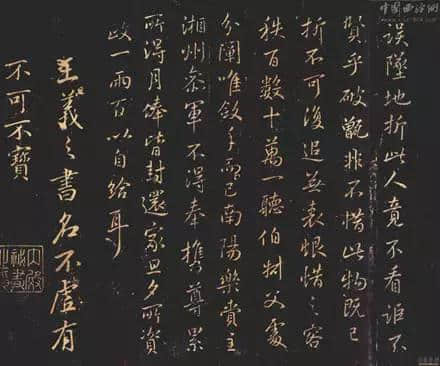 誤墜地折此人竟不看詎不
賢乎破甑非不惜此物既已
折不可復追無哀恨惜之容
秩百數十萬一聽伯樹父處
分闌唯斂手而已南陽樂賞主
湘州參軍不得奉攜尊累
所得月俸皆封還家旦夕所資
政一兩百以自給耳
王羲之書名不虛有
不可不寶